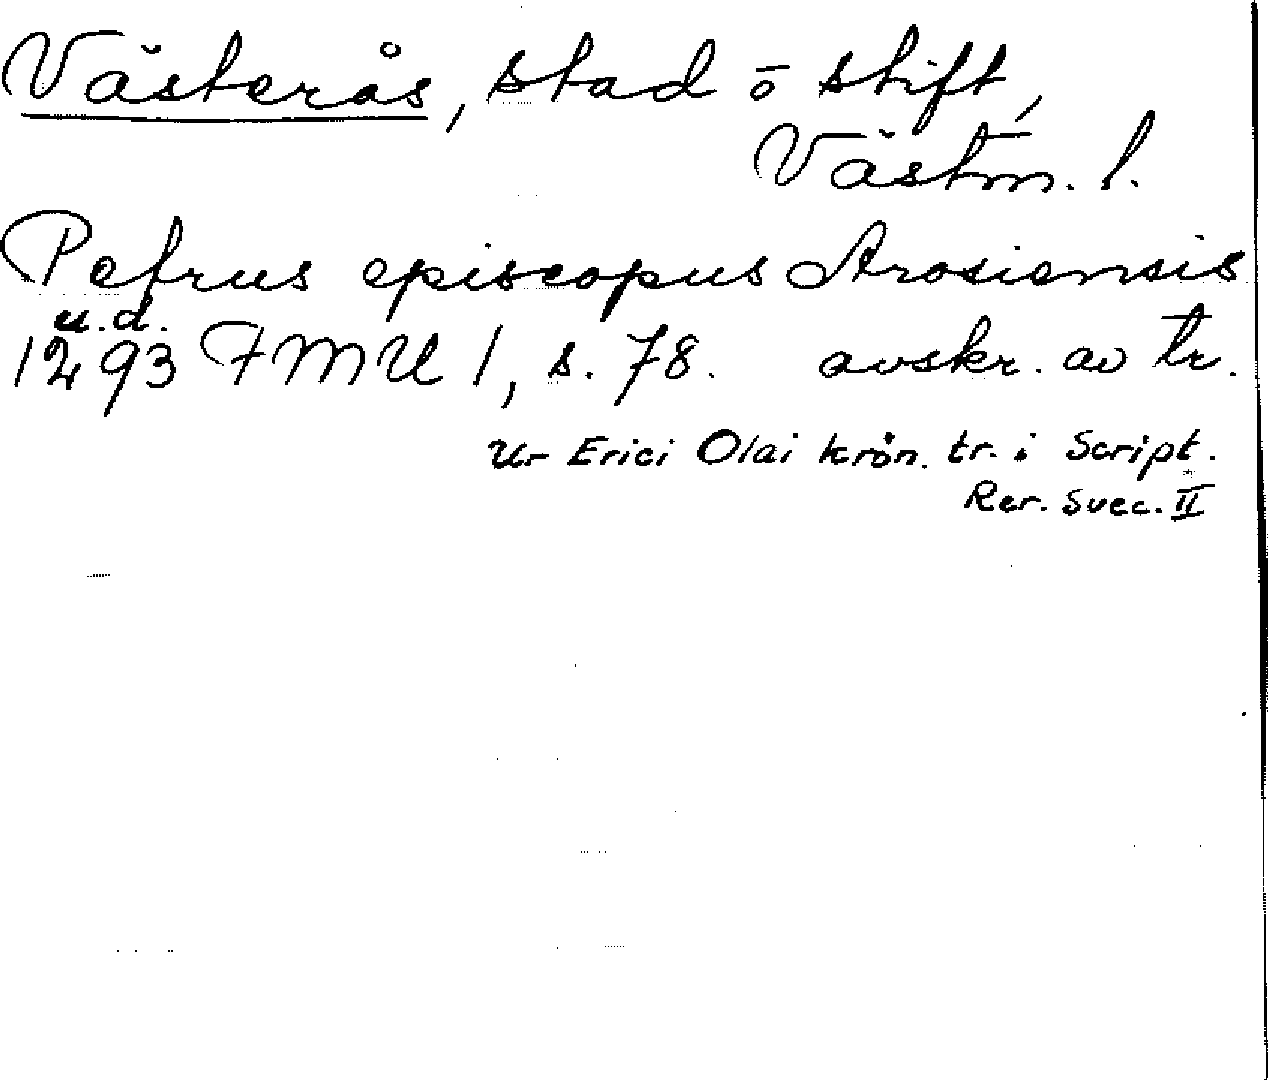 Västerås, stad ō stift,
Västm. l.
Petrus episcopus Arosiensis
u.d.
1293 FMU 1, s. 78. avskr. av tr.
Ur Erici Olai krön. tr. i Script.
Rer. Svec. II